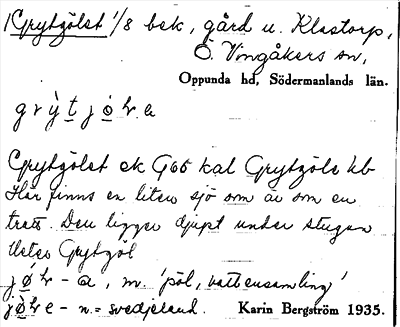 Grytgölet 1/8 bsk, gård u. Klastorp,
Ö. Vingåkers sn,
Oppunda hd, Södermanlands län.
Grytgölet ek G65 kal Grytgöls kb
Här finns en liten sjö som är som en
tratt. Den ligger djupt under stugan
heter Grytgöl
m. 'pöl, vattensamling'
n. = svedjeland. Karin Bergström 1935.